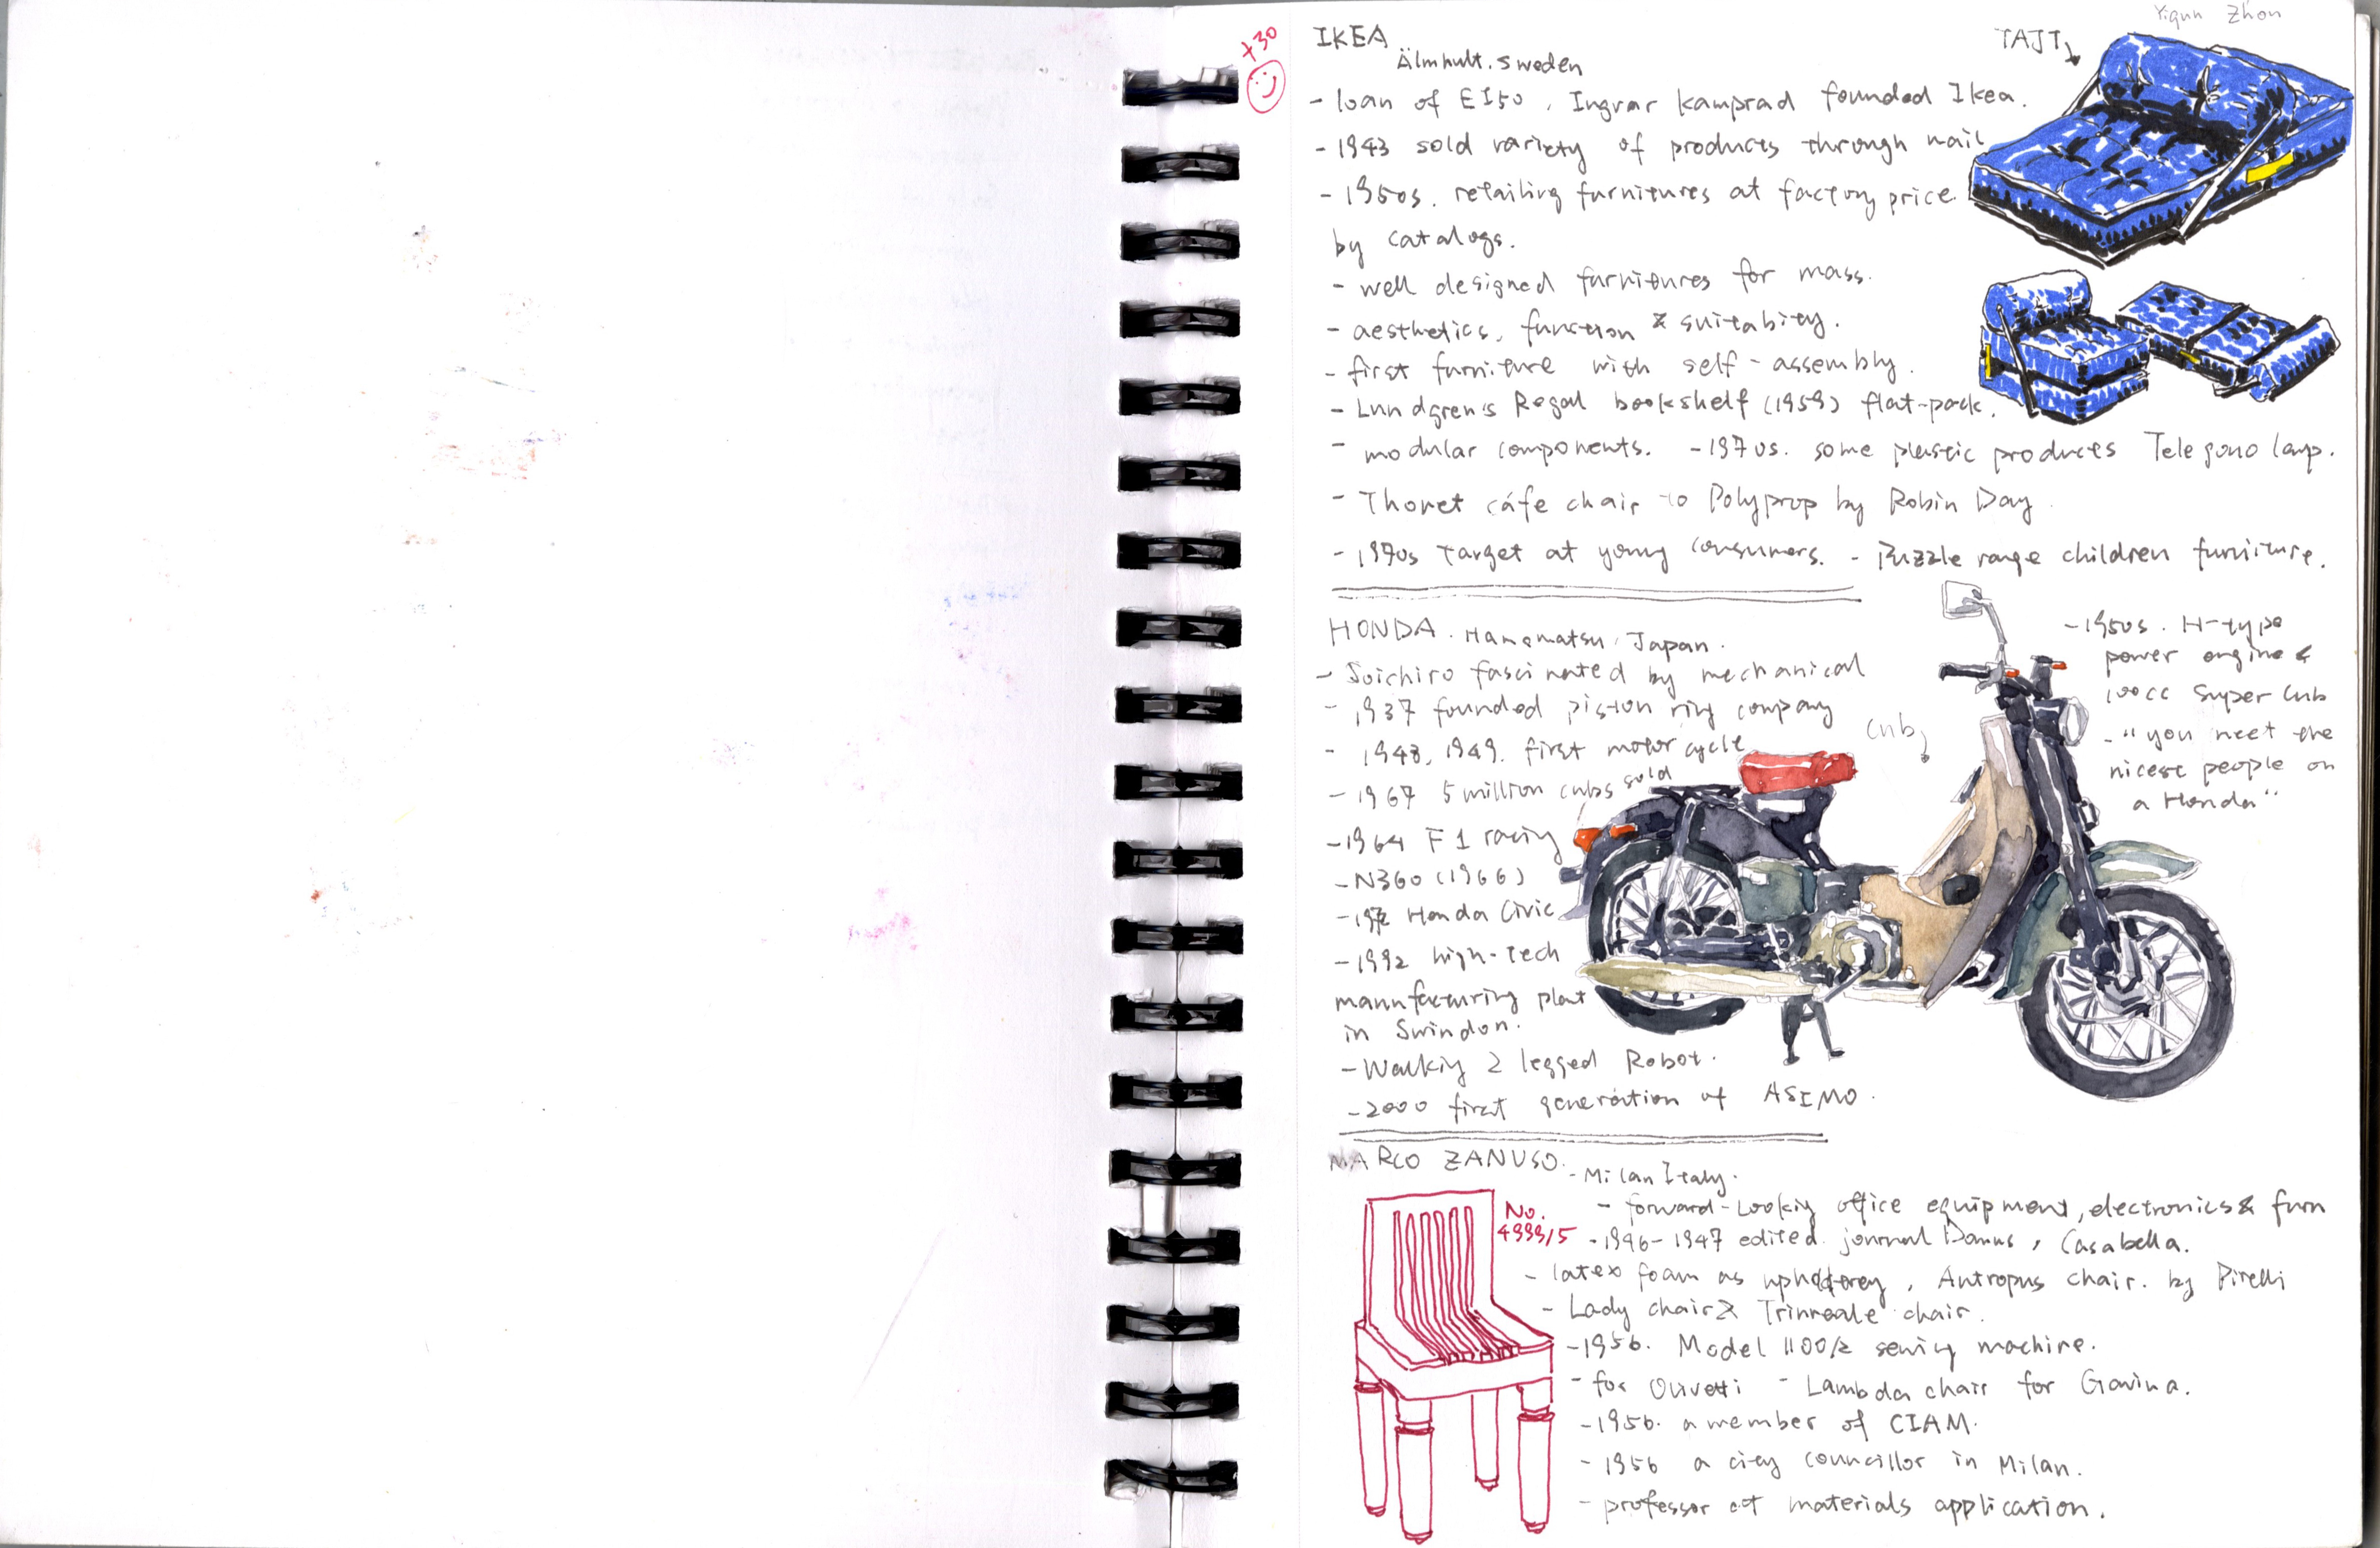 Yiqun Zhou
+30
IKEA
Älmhult. Sweden
TAJT
- loan of £150, Ingvar Kamprad founded Ikea.
- 1943 sold variety of products through mail
- 1950s. retailing furnitures at factory price
by catalogs.
- well designed furnitures for mass.
- aesthetics, function & suitabity.
- first furniture with self-assembly.
- Lundgren's Regal bookshelf (1959) flat-pack.
- modular components. - 1970s. some plastic products Telegono lamp.
- Thonet cáfe chair to Polyprop by Robin Day
- 1970s Target at young consumers. - Puzzle range children furniture.
HONDA. Hamamatsu, Japan.
- Soichiro fascinated by mechanical
- 1937 founded piston ring company
- 1948, 1949. first motorcycle
- 1967 5 million cubs sold
- 1964 F1 racing
- N360 (1966)
- Honda Civic
- 1992 high-tech
manufacturing plat
in Swindon.
- Walking 2 legged Robot.
- 2000 first generation of ASIMO.
cub
- 1950s. H-type
power engine &
100cc Super Cub
- "you meet the
nicest people on
a Honda"
MARCO ZANUSO.
- Milan Italy.
No.
4999/5
- forward-looking office equipment, electronics & furn
- 1946-1947 edited journal Domus, Casabella.
- latex foam as Antropus chair. by Pirelli
- Lady chair & chair.
- 1956. Model 1100/2 sewing machine.
- for Olivetti - Lambda chair for Gavina.
- 1956. a member of CIAM.
- 1956 a city councillor in Milan.
- professor of materials application.